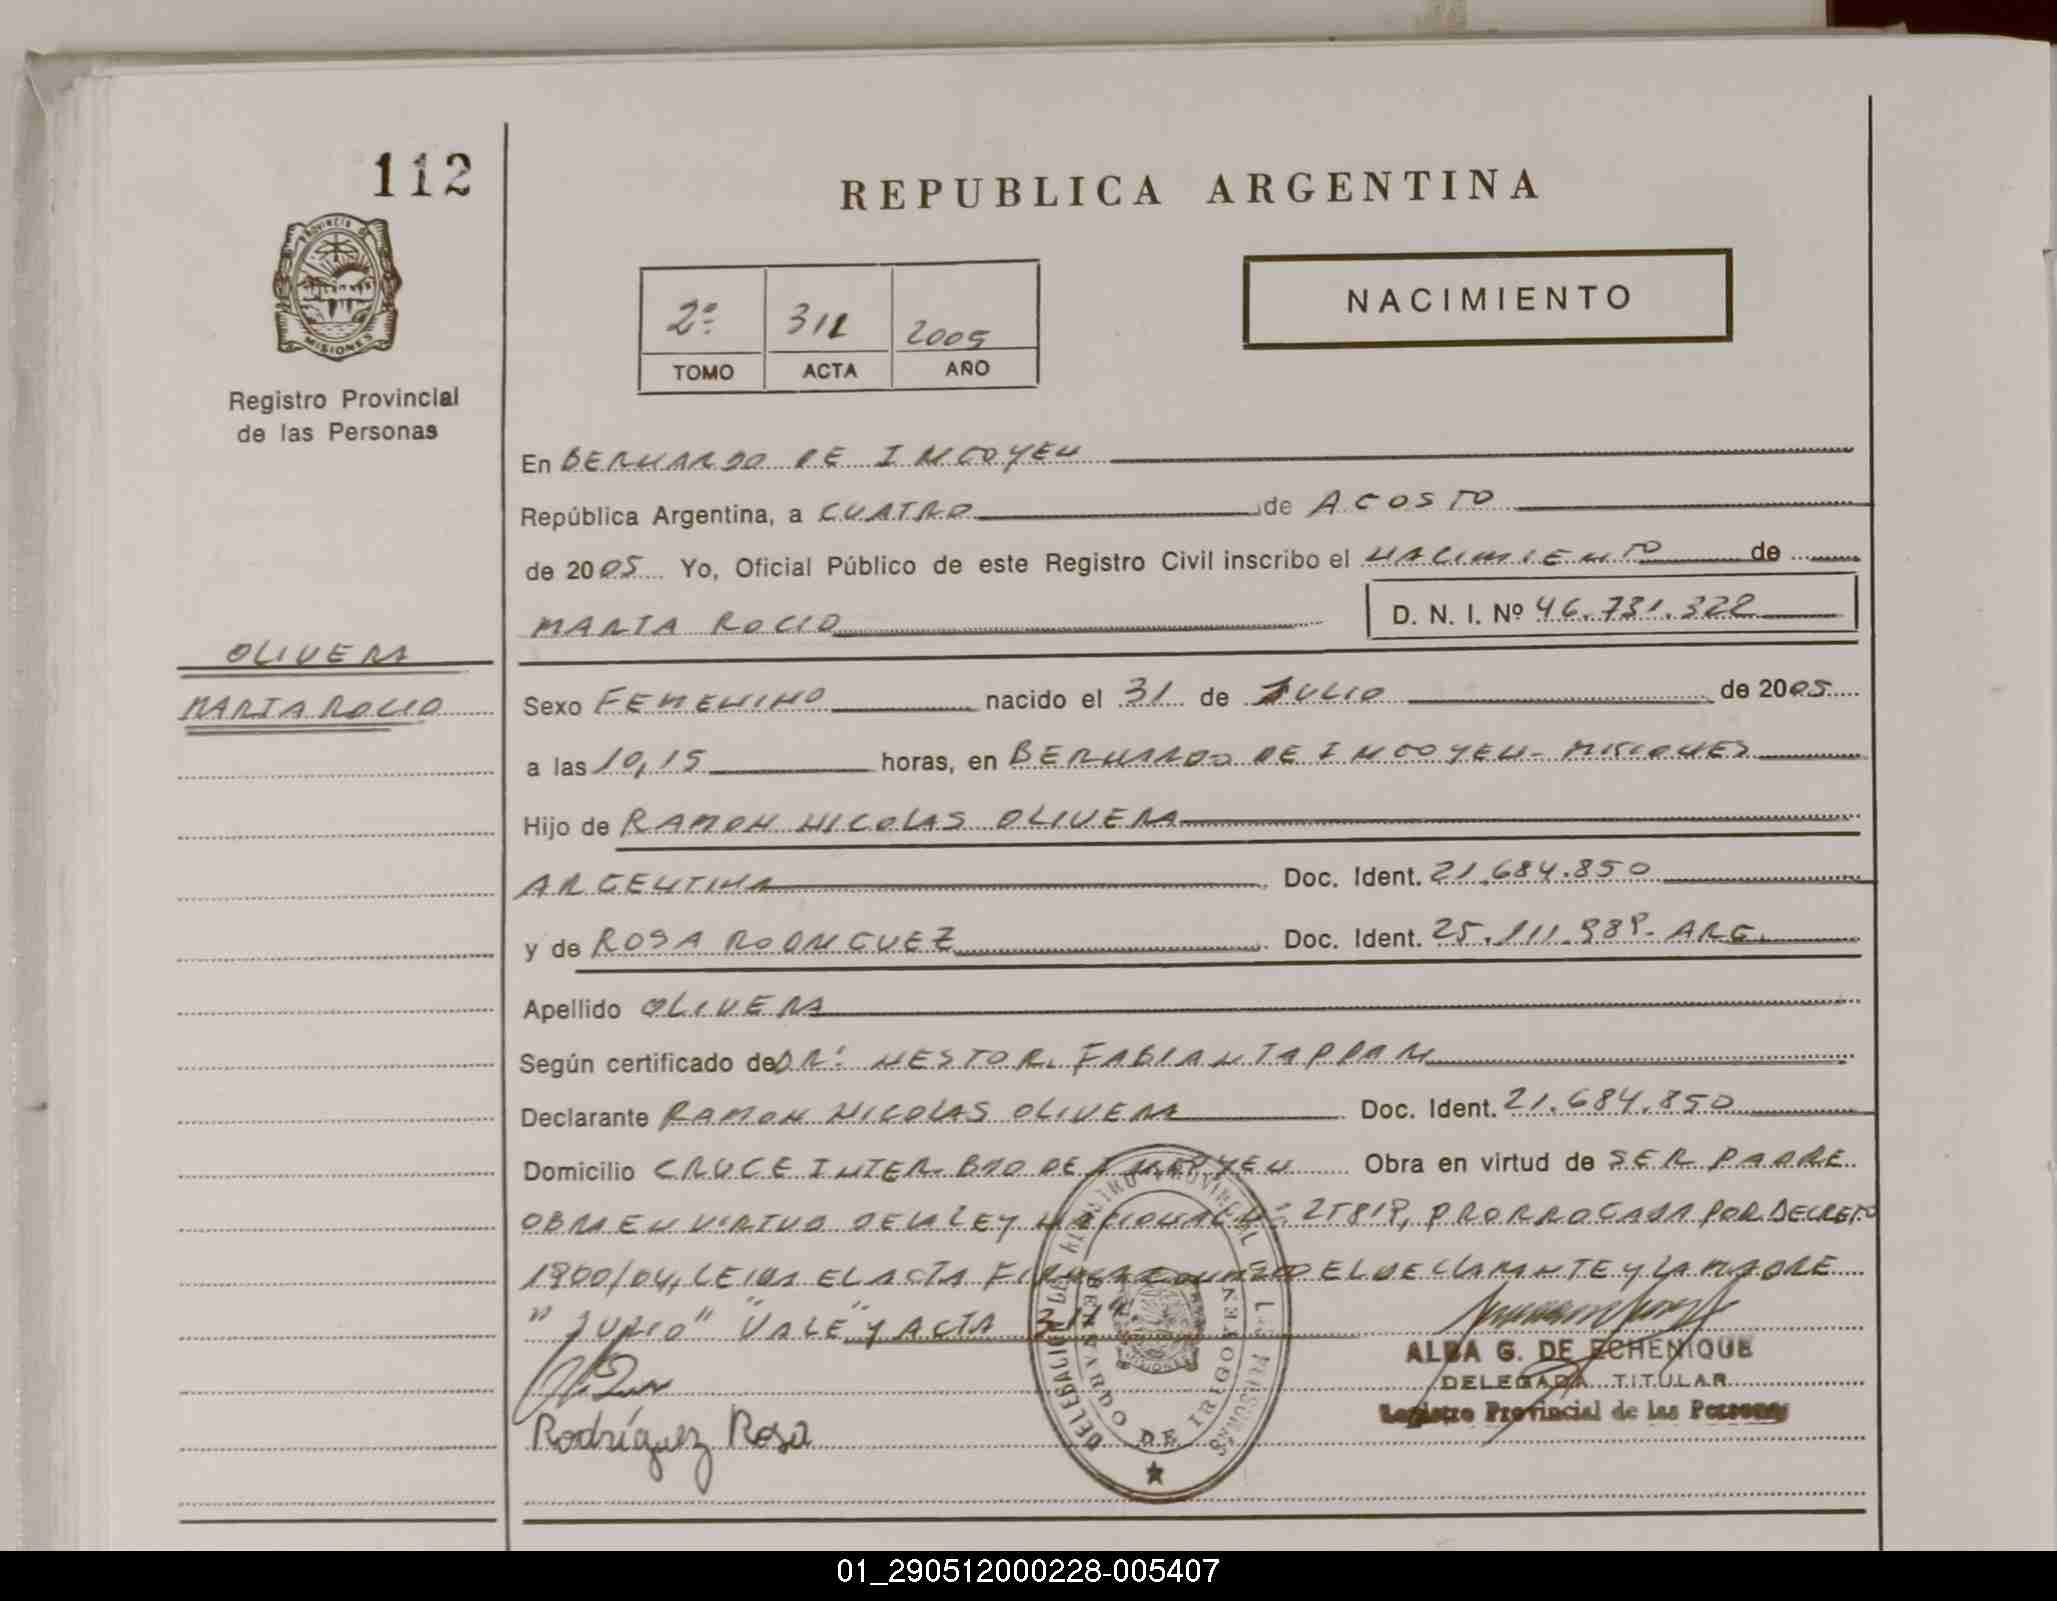 112
REPUBLICA ARGENTINA
PROVINCIA DE
MISIONES
NACIMIENTO
2º 311 2005
TOMO ACTA AÑO
Registro Provincial
de las Personas
En BERNARDO DE IRIGOYEN
República Argentina, a CUATRO de AGOSTO
de 2005 Yo, Oficial Público de este Registro Civil inscribo el NACIMIENTO de
MARIA ROCIO D. N. I. Nº 46.731.322
OLIVERA
MARIA ROCIO
Sexo FEMENINO nacido el 31 de JULIO de 2005
a las 10,15 horas, en BERNARDO DE IRIGOYEN - MISIONES
Hijo de RAMON NICOLAS OLIVERA
ARGENTINA Doc. Ident. 21.684.850
y de ROSA RODRIGUEZ Doc. Ident. 25.111.989- ARG.
Apellido OLIVERA
Según certificado de DR: NESTOR FABIAN TAPPARI
Declarante RAMON NICOLAS OLIVERA Doc. Ident. 21.684.850
Domicilio CRUCE INTER. BDO DE IRIGOYEN Obra en virtud de SER PADRE
OBRA EN VIRTUD DE LA LEY NACIONAL Nº 25819, PRORROGADA POR DECRETO
1900/04, LEIDA EL ACTA FIRMA CONMIGO EL DECLARANTE Y LA MADRE
"JULIO" "VALE" Y ACTA 311"
ALBA G. DE ECHENIQUE
DELEGADA TITULAR
Registro Provincial de las Personas
Rodríguez Rosa
DELEGACION DEL REGISTRO PROVINCIAL DE LAS PERSONAS
BERNARDO DE IRIGOYEN
MISIONES
01_290512000228-005407